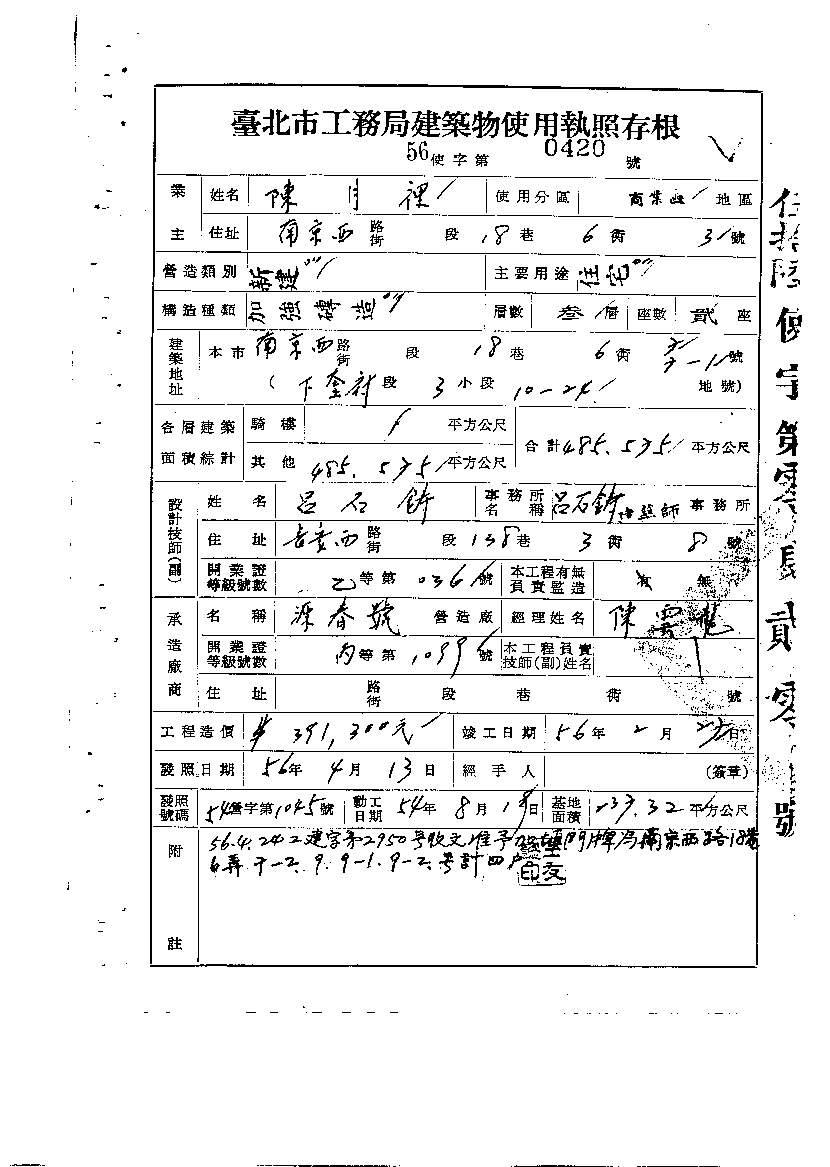 臺北市工務局建築物使用執照存根
56使字第 0420 號
業主 姓名 陳月裡 使用分區 商業區 地區
住址 南京西 路街 段 18巷 6衖 31號
營造類別 新建 主要用途 住宅
構造種類 加強磚造 層數 叁層 座數 貳座
建築地址 本市 南京西 路街 段 18巷 6衖 號
(下奎府段 3小段 10-24 地號)
各層建築面積綜計 騎樓 平方公尺 合計 485.535 平方公尺
其他 485.535 平方公尺
設計技師(副) 姓名 呂石 事務所名稱 呂石 建築師 事務所
住址 長安西 路街 段 138巷 3衖 8號
開業證等級號數 乙等第 0366號 本工程有無負責監造 有 無
承造廠商 名稱 源春號 營造廠 經理姓名 陳雲龍
開業證等級號數 丙等第 1096號 本工程負責技師(副)姓名
住址 路街 段 巷 衖 號
工程造價 391,300元 竣工日期 56年 2月 日
發照日期 56年 4月 13日 經手人 (簽章)
發照號碼 54營字第1045號 動工日期 54年 8月 18日 基地面積 237.32 平方公尺
附註 56.4.24北建字第2950号收文准予 門牌為南京西路18巷
6弄7-2.9.9-1.9-2.号計四戶
伍拾陸使字第零肆貳零號